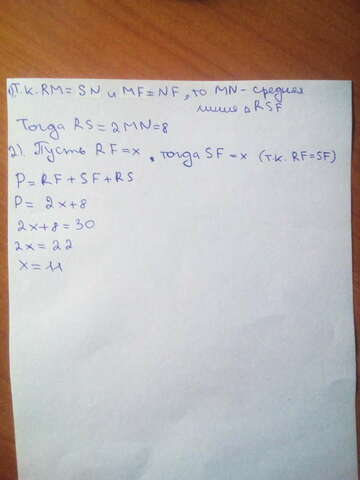 1) Т.к. RM = SN и MF = NF, то MN - средняя
линия △ RSF
Тогда RS = 2MN = 8
2). Пусть RF = x, тогда SF = x (т.к. RF = SF)
P = RF + SF + RS
P = 2x + 8
2x + 8 = 30
2x = 22
x = 11